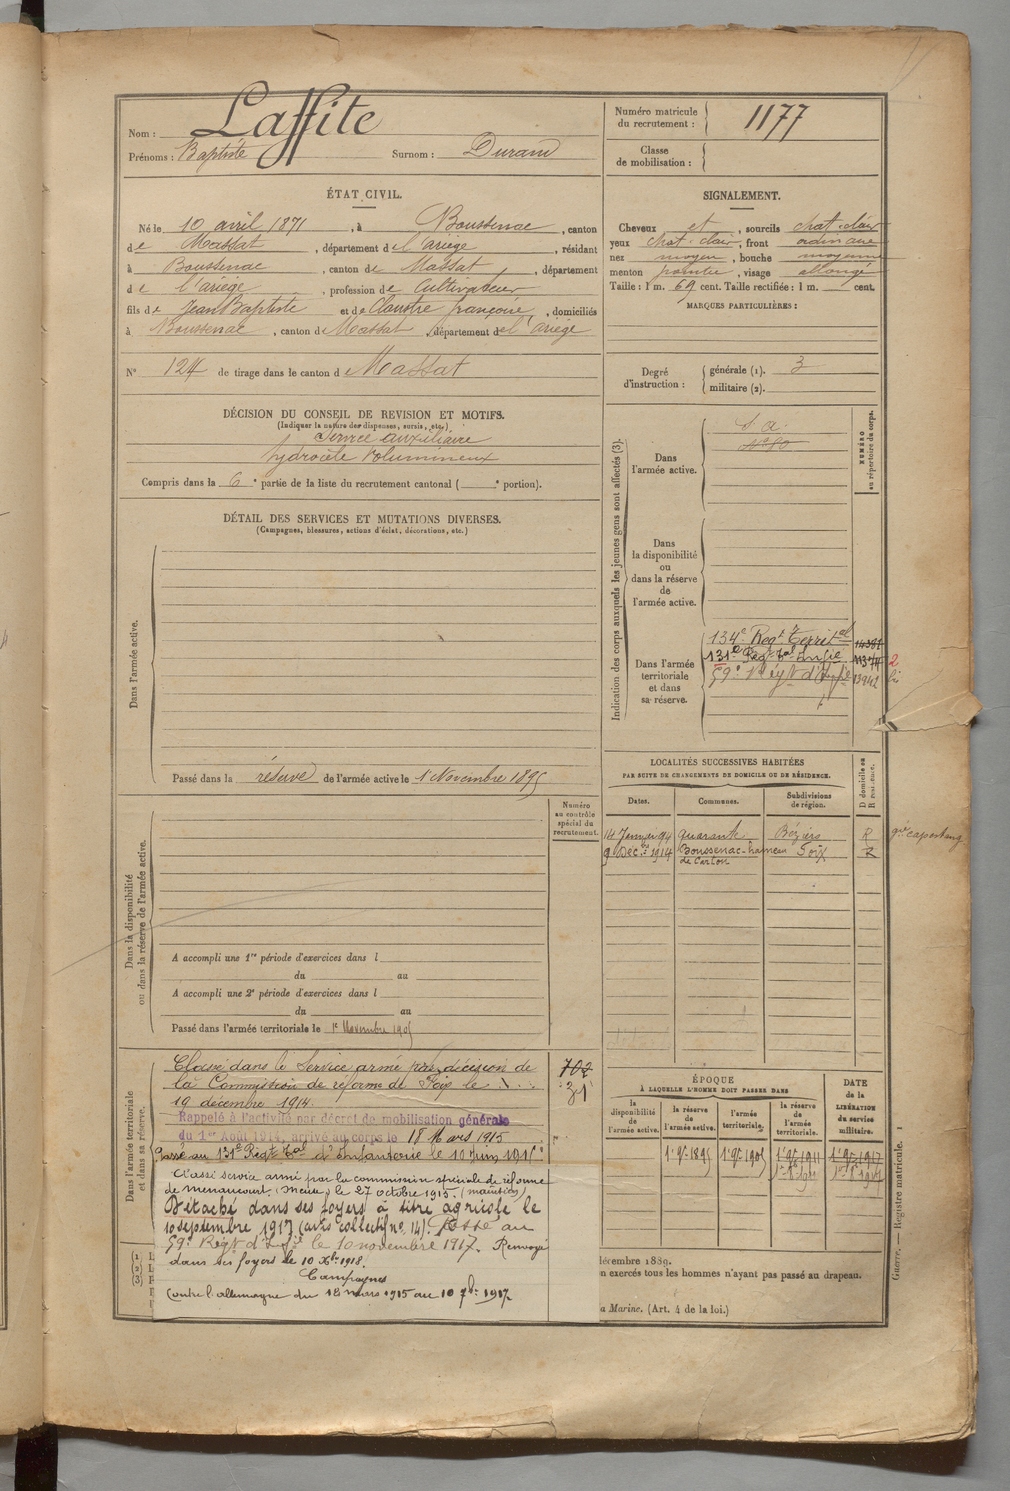 Nom : Laffite
Prénoms : Baptiste Surnom : Durand
Numéro matricule du recrutement : 1177
Classe de mobilisation :
ÉTAT CIVIL.
Né le 10 avril 1871, à Boussenac, canton
de Massat, département de l'ariège, résidant
à Boussenac, canton de Massat, département
de l'ariège, profession de Cultivateur
fils de Jean Baptiste et de Claustre françoise, domiciliés
à Boussenac, canton de Massat, département de l'ariège
N° 124 de tirage dans le canton de Massat
SIGNALEMENT.
Cheveux et, sourcils chat. clair
yeux chat. clair, front ordinaire
nez moyen, bouche moyenne
menton pointu, visage allongé
Taille : 1 m. 69 cent. Taille rectifiée : 1 m. cent.
MARQUES PARTICULIÈRES :
Degré d'instruction : générale (1). 3
militaire (2).
DÉCISION DU CONSEIL DE REVISION ET MOTIFS.
(Indiquer la nature des dispenses, sursis, etc.)
Service auxiliaire
hydrocèle volumineux
Compris dans la 6e partie de la liste du recrutement cantonal ( e portion).
DÉTAIL DES SERVICES ET MUTATIONS DIVERSES.
(Campagnes, blessures, actions d'éclat, décorations, etc.)
Dans l'armée active.
Passé dans la réserve de l'armée active le 1 Novembre 1895
Numéro au contrôle spécial du recrutement.
Dans la disponibilité ou dans la réserve de l'armée active.
A accompli une 1re période d'exercices dans l
du au
A accompli une 2e période d'exercices dans l
du au
Passé dans l'armée territoriale le 1er Novembre 1905
Dans l'armée territoriale et dans sa réserve.
Classé dans le Service armé par décision de
la Commission de réforme de Foix le
19 décembre 1914.
702
31
Rappelé à l'activité par décret de mobilisation générale
du 1er Août 1914, arrivé au corps le 18 Mars 1915
Passé au 131e Regt Tal d'Infanterie le 10 Juin 1915
Classé service armé par la commission spéciale de réforme
de Menaucourt (Meuse) le 27 octobre 1915. (maintien)
Détaché dans ses foyers à titre agricole le
10 septembre 1917 (avis collectif no 14). Passé au
59e Regt d'Infie le 10 novembre 1917. Renvoyé
dans ses foyers le 10 Xbre 1918.
Campagnes
Contre l'allemagne du 18 mars 1915 au 10 7bre 1917
(1)
(2)
(3)
Indication des corps auxquels les jeunes gens sont affectés (3).
NUMÉRO au répertoire du corps.
Dans l'armée active.
S. a.
Dans la disponibilité ou dans la réserve de l'armée active.
Dans l'armée territoriale et dans sa réserve.
134e Regt Territal
131e Regt Tal Infie 2
59e Régt d'Infie 13942 bis
LOCALITÉS SUCCESSIVES HABITÉES
PAR SUITE DE CHANGEMENTS DE DOMICILE OU DE RÉSIDENCE.
Dates. Communes. Subdivisions de région. D domicile ou R résidence.
14 Janvier 94 quarante Béziers R
9 Déc. bre 1914 Boussenac-hameau de Carton Foix R
ÉPOQUE
À LAQUELLE L'HOMME DOIT PASSER DANS
DATE de la LIBÉRATION du service militaire.
la disponibilité de l'armée active. la réserve de l'armée active. l'armée territoriale. la réserve de l'armée territoriale.
1er 9bre 1895 1er 9bre 1905 1er 9bre 1911 1er 9bre 1917
décembre 1889.
n exercés tous les hommes n'ayant pas passé au drapeau.
a Marine. (Art. 4 de la loi.)
Guerre. — Registre matricule. 1